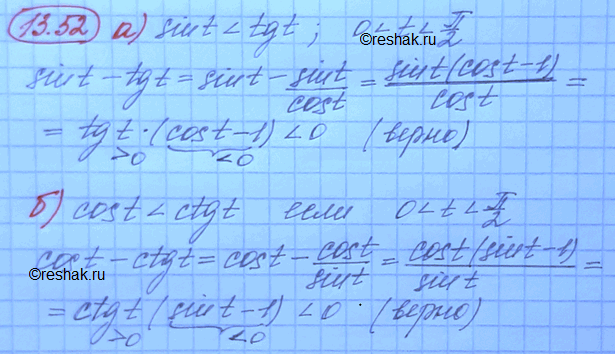 13.52 а) sint < tgt ; 0<t<π/2
sint − tgt = sint − sint/cost = sint(cost−1)/cost =
= tgt·(cost−1) < 0 (верно)
>0 <0
©reshak.ru
б) cost < ctgt если 0<t<π/2
cost − ctgt = cost − cost/sint = cost(sint−1)/sint =
©reshak.ru
= ctgt (sint−1) < 0 · (верно)
>0 <0
©reshak.ru